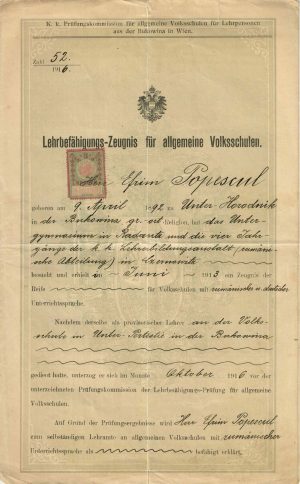 K. k. Prüfungskommission für allgemeine Volksschulen für Lehrpersonen
aus der Bukowina in Wien.
Zahl 52.
1916.
Lehrbefähigungs-Zeugnis für allgemeine Volksschulen.
Herr Efrim Popescul
geboren am 9. April 1892 zu Unter Horodnik
in der Bukowina gr. or. Religion, hat das Unter-
gymnasium in Radautz und die vier Jahr-
gänge der k. k. Lehrerbildungsanstalt (rumäni-
sche Abteilung) in Czernowitz
besucht und erhielt im Juni 1913 ein Zeugnis der
Reife für Volksschulen mit rumänischer u. deutscher
Unterrichtssprache.
Nachdem derselbe als provisorischer Lehrer an der Volks-
schule in Unter- in der Bukowina
gedient hatte, unterzog er sich im Monate Oktober 1916 vor der
unterzeichneten Prüfungskommission der Lehrbefähigungs-Prüfung für allgemeine
Volksschulen.
Auf Grund der Prüfungsergebnisse wird Herr Efrim Popescul
zum selbständigen Lehramte an allgemeinen Volksschulen mit rumänischer
Unterrichtssprache als befähigt erklärt.